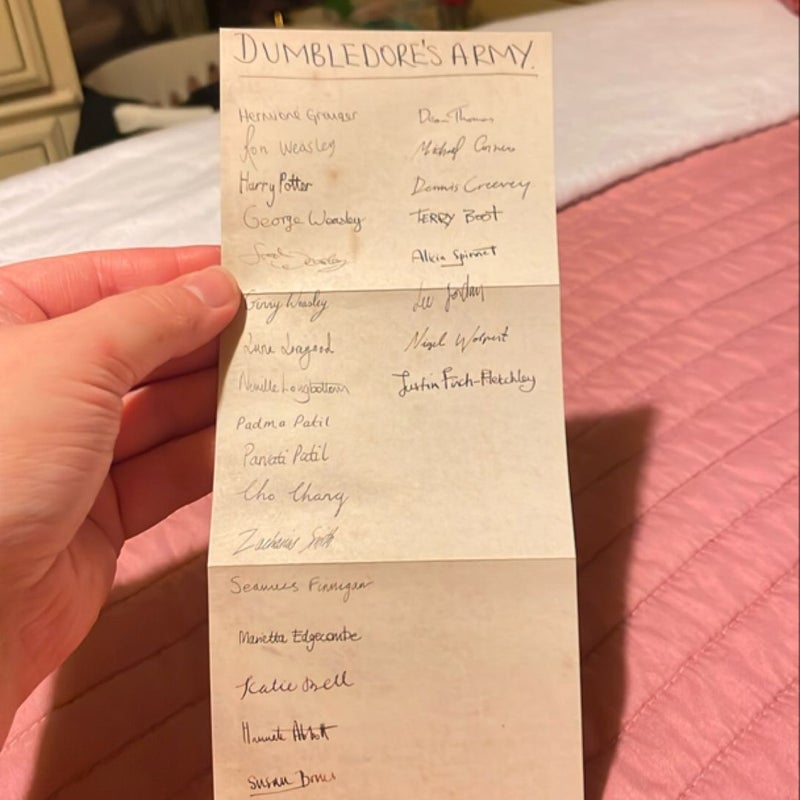 DUMBLEDORE'S ARMY.
Hermione Granger
Ron Weasley
Harry Potter
George Weasley
Fred Weasley
Ginny Weasley
Luna Lovegood
Neville Longbottom
Padma Patil
Parvati Patil
Cho Chang
Zacharias Smith
Seamus Finnigan
Marietta Edgecombe
Katie Bell
Hannah Abbott
Susan Bones
Dean Thomas
Michael Corner
Dennis Creevey
TERRY BOOT
Alicia Spinnet
Lee Jordan
Nigel Wolpert
Justin Finch-Fletchley